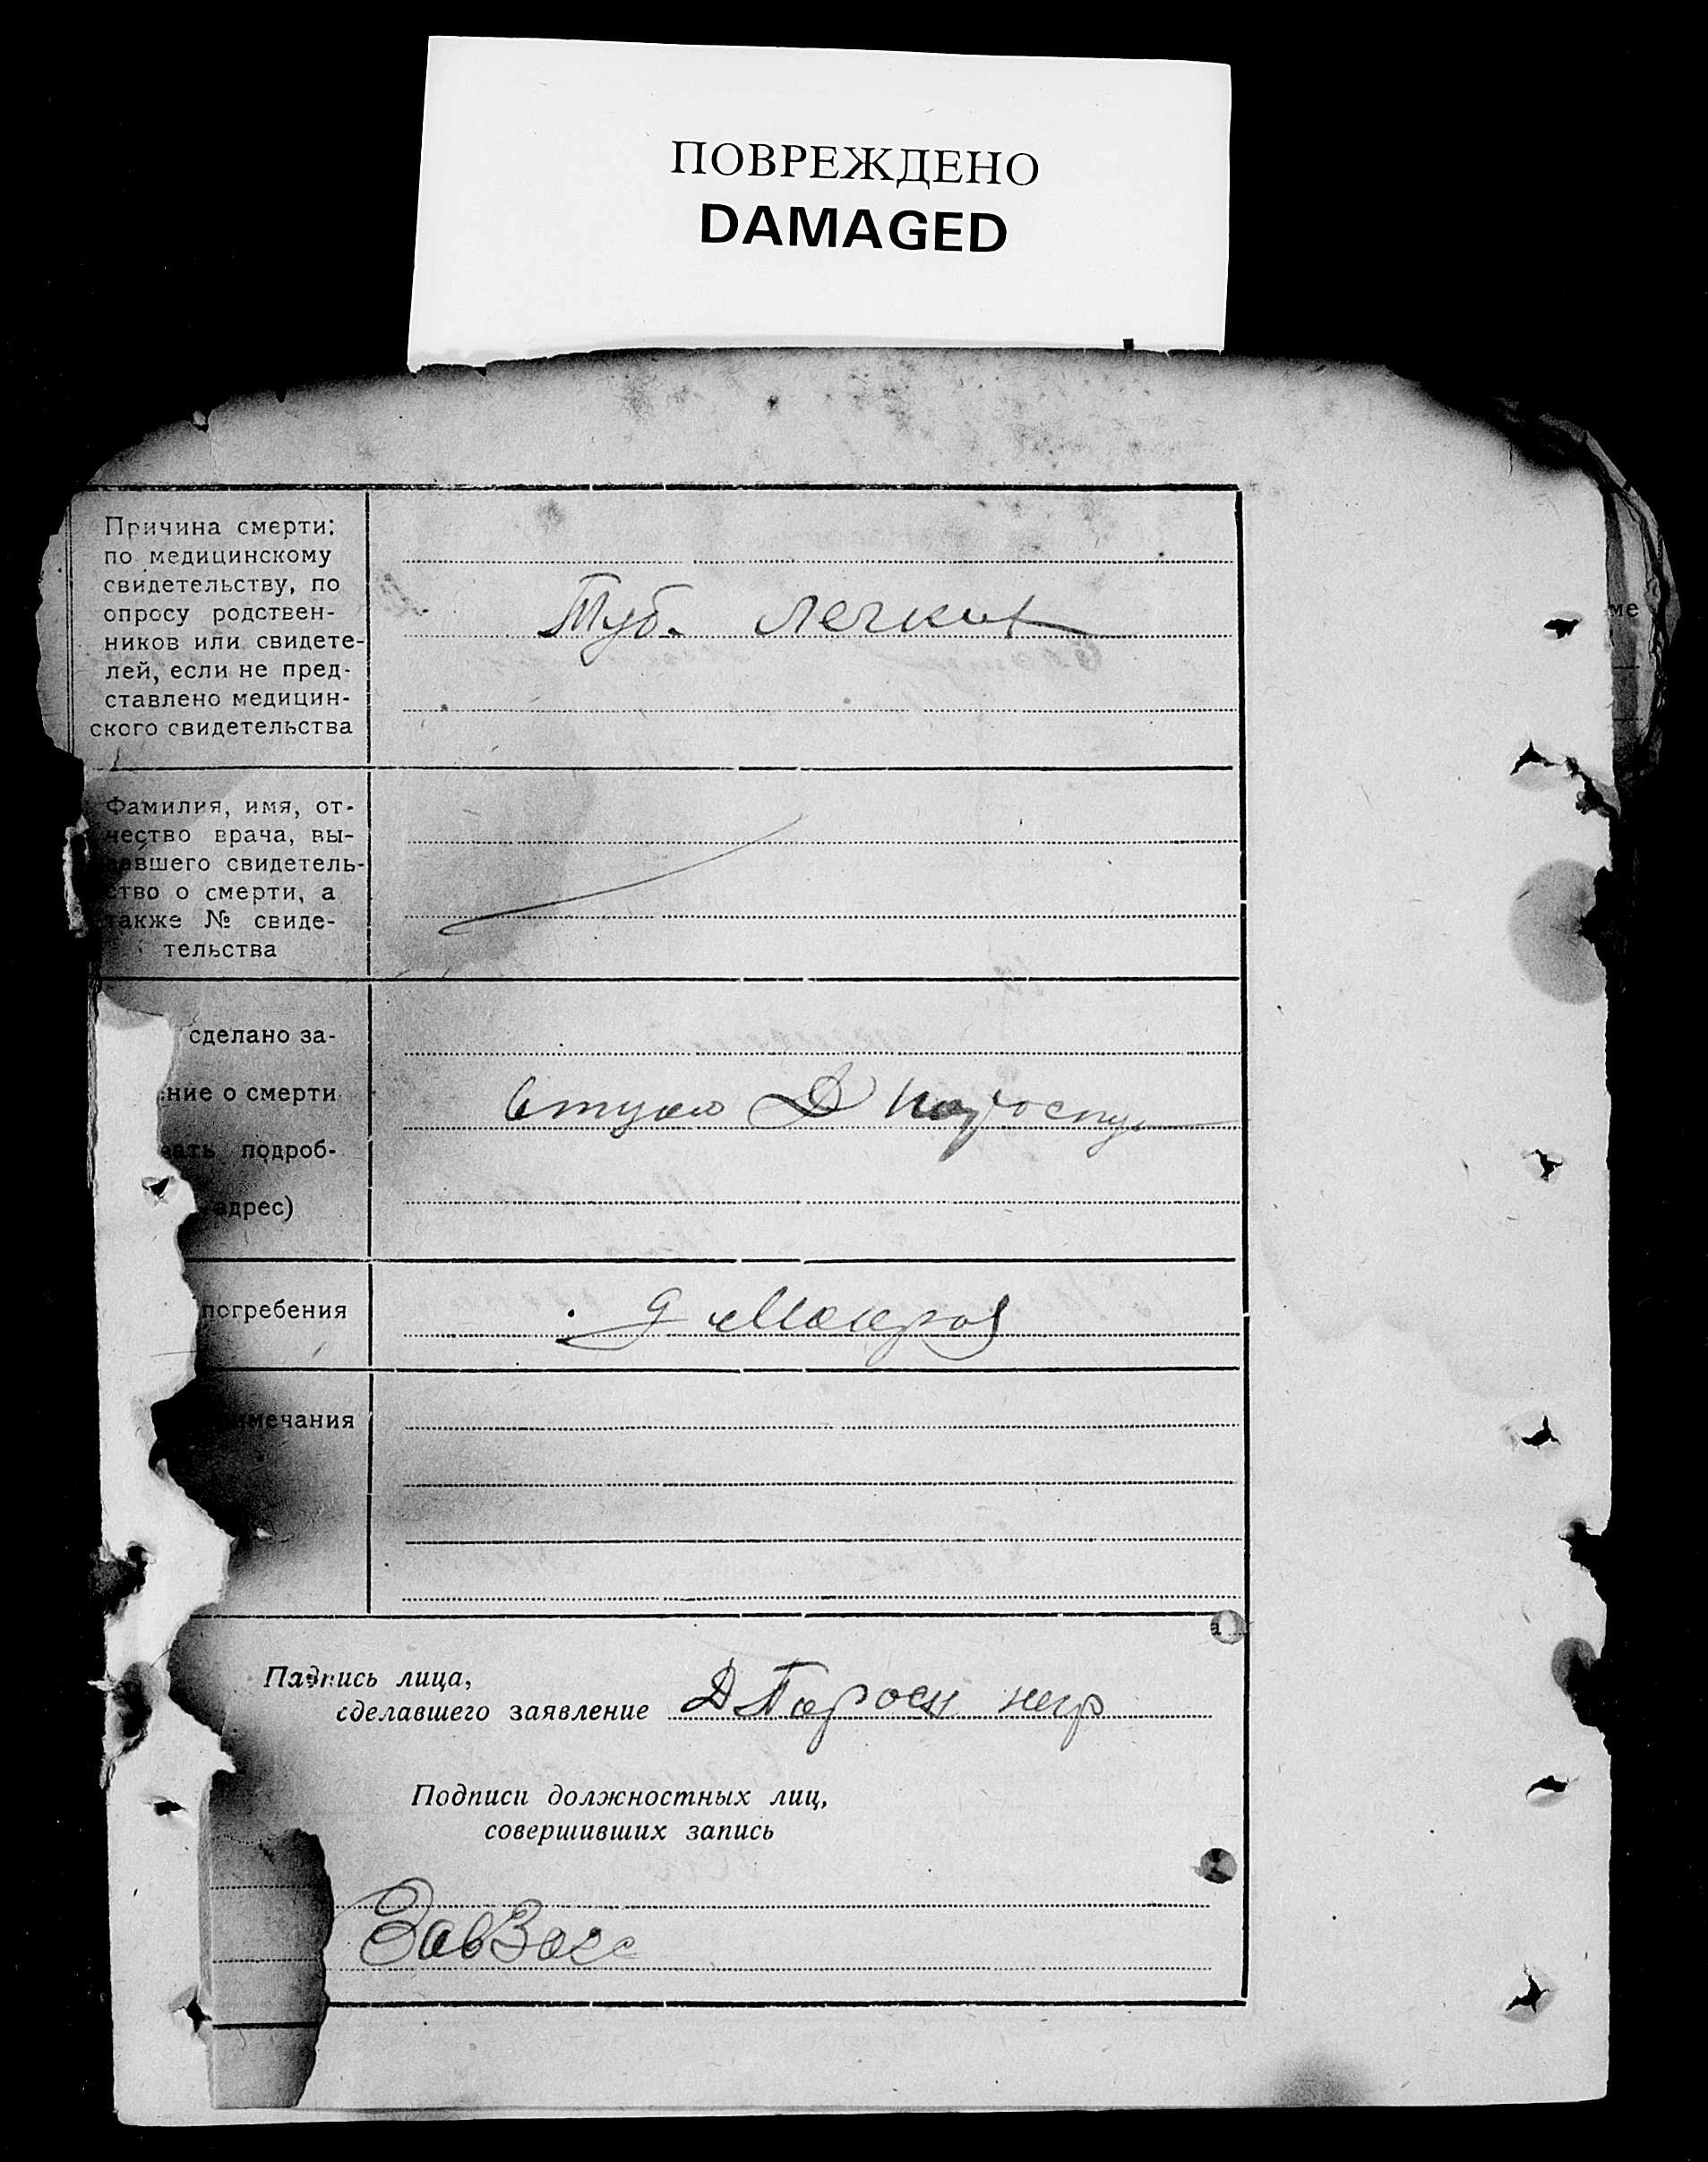 ПОВРЕЖДЕНО
DAMAGED
Причина смерти:
по медицинскому
свидетельству, по
опросу родствен-
ников или свидете-
лей, если не пред-
ставлено медицин-
ского свидетельства
Туб. легких
ме
Фамилия, имя, от-
чество врача, вы-
давшего свидетель-
ство о смерти, а
также № свиде-
тельства
сделано за-
ние о смерти
вать подроб-
адрес)
Д
погребения
мечания
Подпись лица,
сделавшего заявление Д
Подписи должностных лиц,
совершивших запись
ЗавЗагс